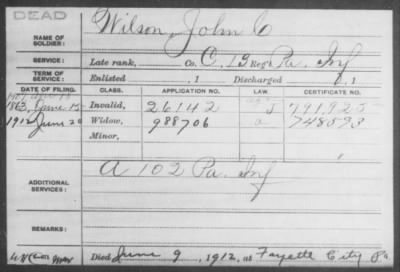 DEAD
NAME OF SOLDIER: Wilson, John C
SERVICE: Late rank, Co. C, 19 Reg't Pa. Inf
TERM OF SERVICE: Enlisted , 1 Discharged , 1
DATE OF FILING. CLASS. APPLICATION NO. LAW. CERTIFICATE NO.
1863, June Invalid, 26142 791,925
1912 June 20 Widow, 988706 a 748593
Minor,
ADDITIONAL SERVICES: A 102 Pa. Inf
REMARKS:
Died June 9, 1912, at Fayette City Pa